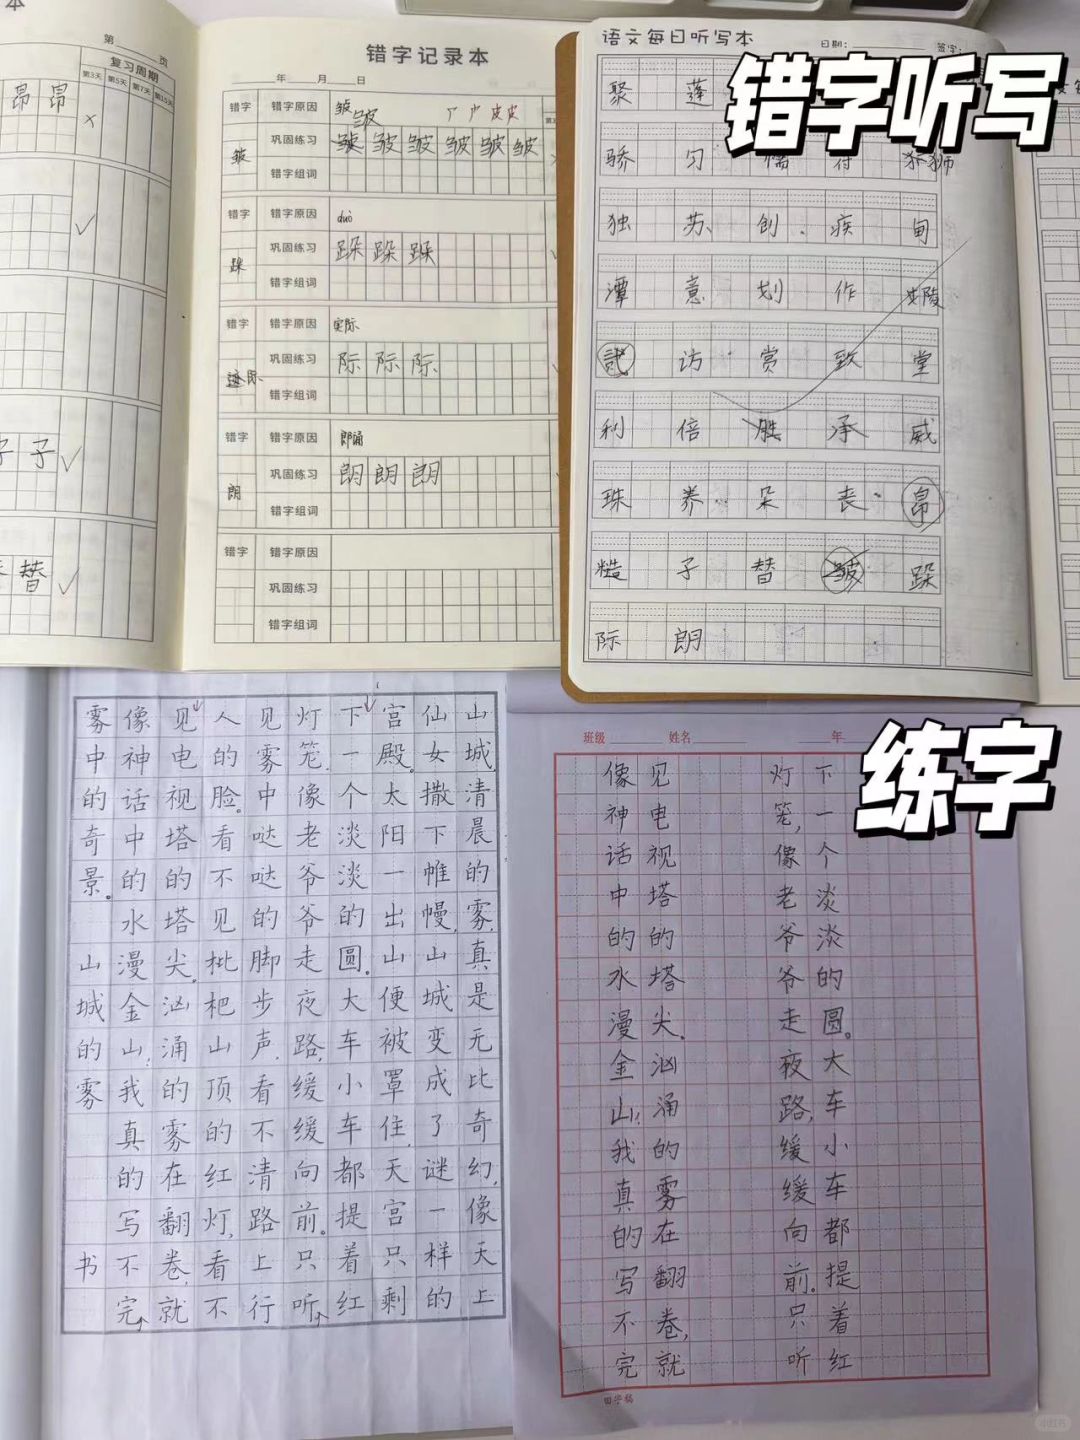 本
第 页
复习周期
第3天 第5天 第7天 第15天
昂 昂
×
子 子
替
错字记录本
年 月 日
错字 错字原因 皱 皱 皮 皮
皱 巩固练习 皱 皱 皱 皱 皱 皱
错字组词
错字 错字原因 duò
跺 巩固练习 跺 跺 跺
错字组词
错字 错字原因 实际
际 巩固练习 际 际 际
错字组词
错字 错字原因 郎诵
朗 巩固练习 朗 朗 朗
错字组词
错字 错字原因
巩固练习
错字组词
语文每日听写本 日期: 签字:
错字听写
聚 蓬
骄 匀 懦 付 狮
独 苏 创 疾 甸
潭 意 划 作 陵
访 赏 致 堂
利 倍 胜 承 威
珠 养 朵 丧 昂
糙 子 替 皱 跺
际 朗
山城,清晨的雾,真是无比奇幻,像天上
仙女撒下帷幔,山城变成了谜一样的
宫殿。太阳一出山便被罩住,天宫只剩
下一个淡淡的圆。大车小车都提着红
灯笼,像老爷爷走夜路,缓缓向前。只听
见雾中哒哒的脚步声,看不清路上行
人的脸。看不见枇杷山顶的红灯,看不
见电视塔的塔尖。汹涌的雾在翻卷,就
像神话中的水漫金山,我真的写不完
雾中的奇景。 山城的雾 书
练字
班级 姓名 年
下一个淡淡的圆。大车小车都提着红
灯笼,像老爷爷走夜路,缓缓向前。只听
见电视塔的塔尖。汹涌的雾在翻卷,就
像神话中的水漫金山,我真的写不完
田字稿
小红书